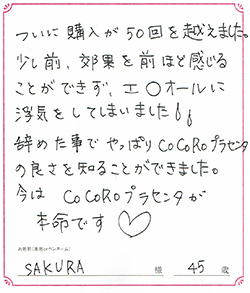 ついに購入が50回を越えました。
少し前、効果を前ほど感じる
ことができず、エ○オールに
浮気をしてしまいました!!
辞めた事でやっぱりCoCoRoプラセンタ
の良さを知ることができました。
今は CoCoRoプラセンタが
本命です♡
お名前(本名orペンネーム)
SAKURA 様 45 歳